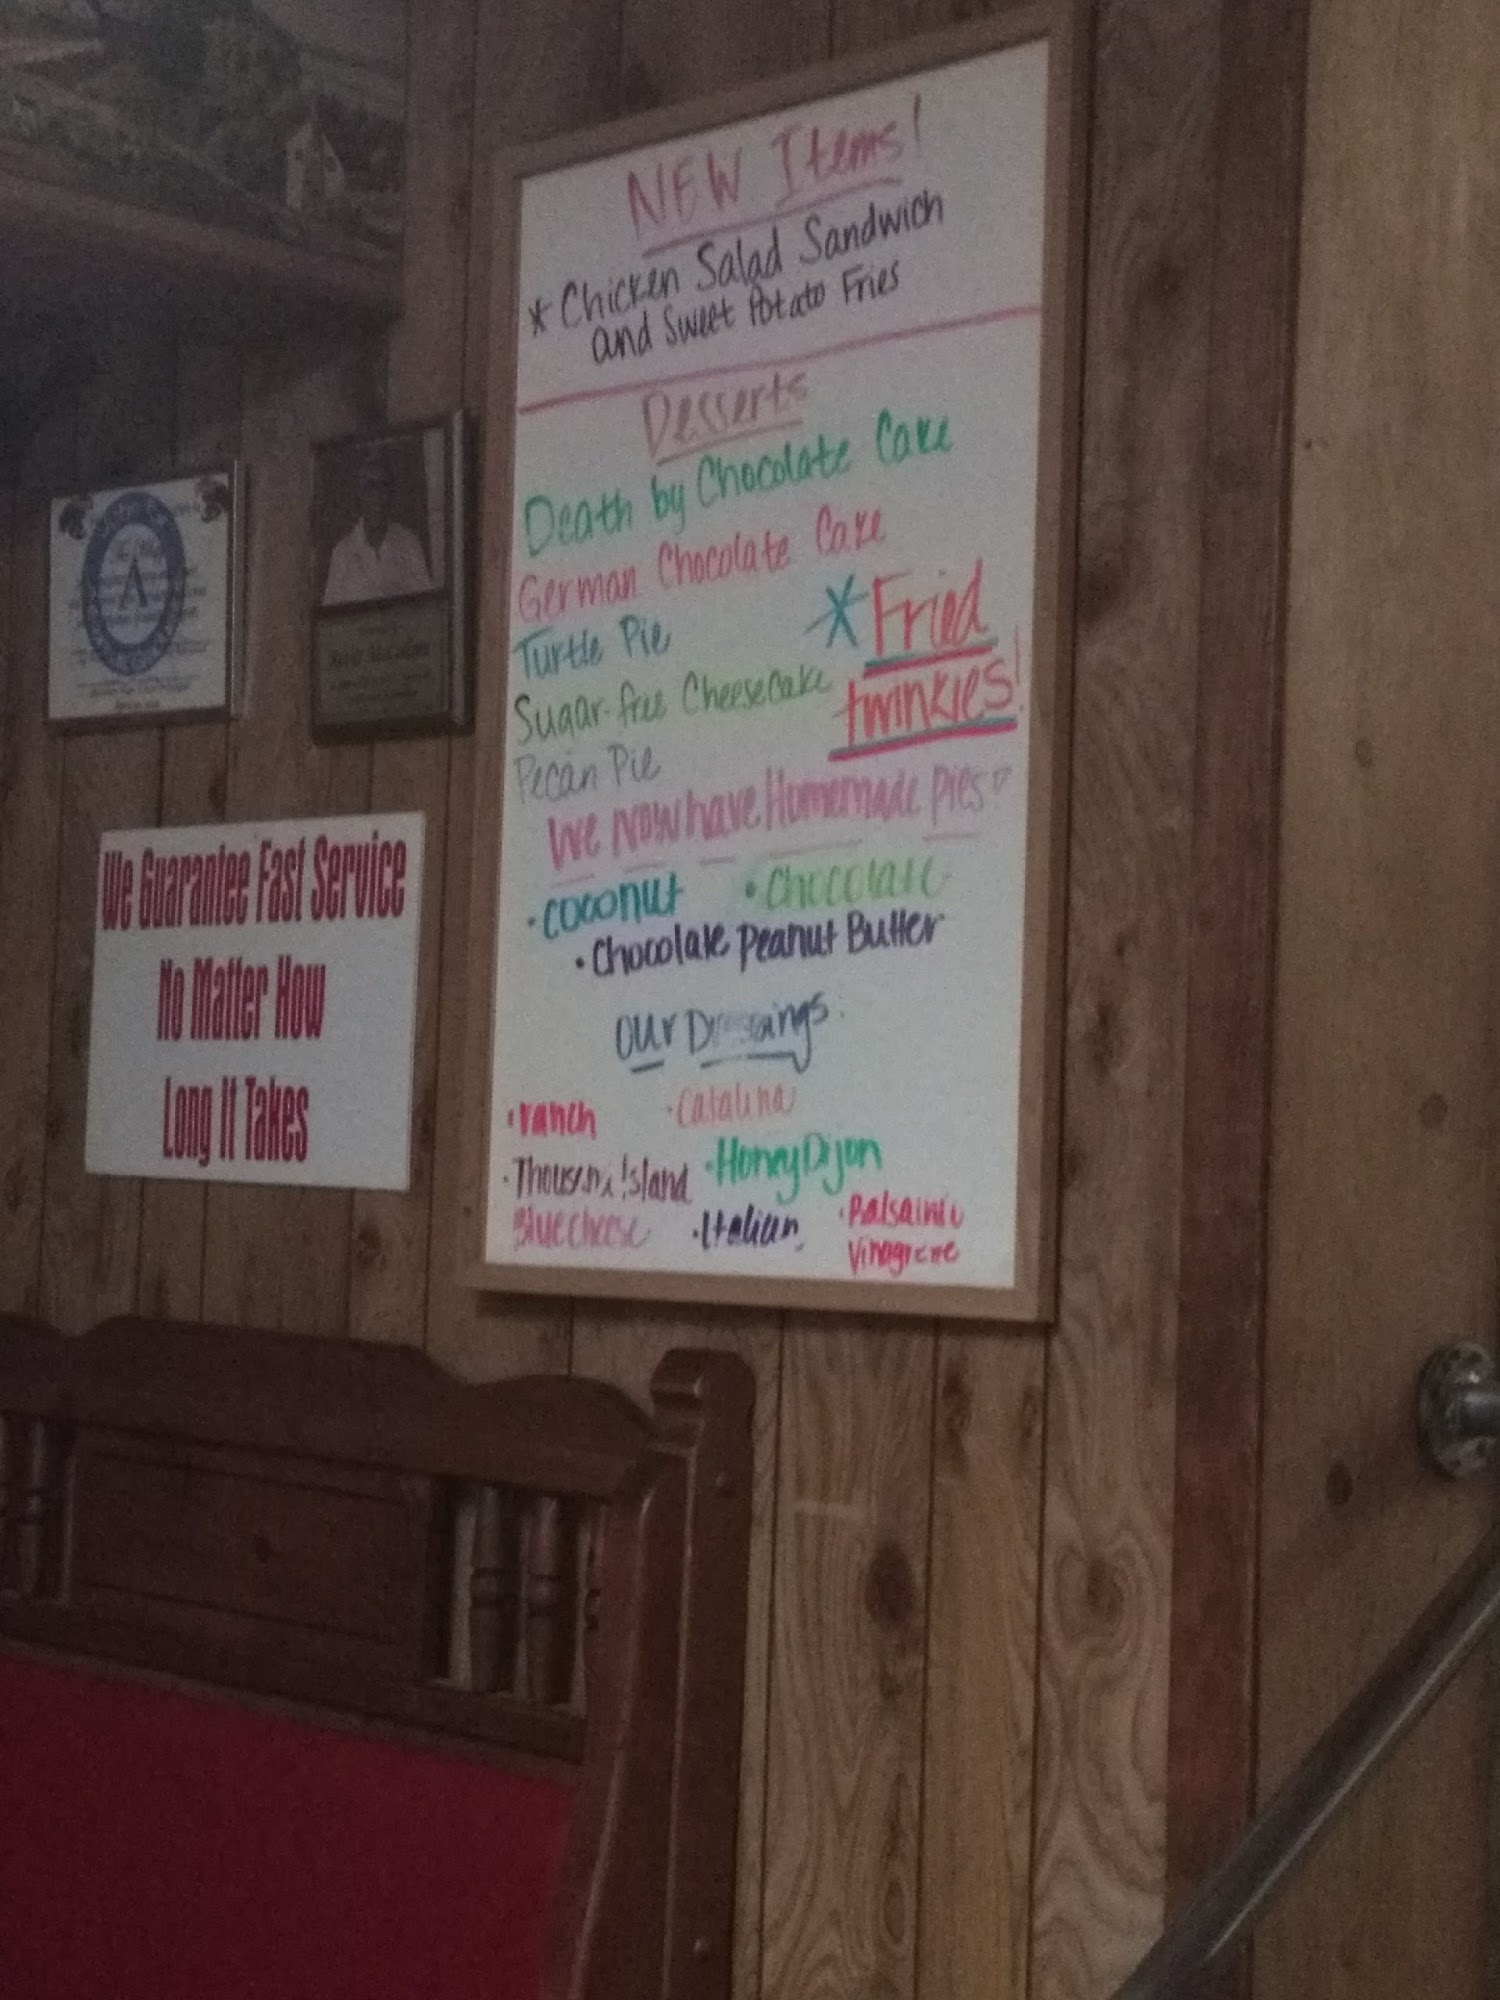 NEW Items!
* Chicken Salad Sandwich
and Sweet Potato Fries
Desserts
Death by Chocolate Cake
German Chocolate Cake
Turtle Pie
* Fried
twinkies!
Sugar-free Cheesecake
Pecan Pie
We Now have Homemade Pies
• Coconut • Chocolate
• Chocolate Peanut Butter
Our Dressings
• ranch • Catalina
• Thousand Island • Honey Dijon
Blue Cheese • Italian • Balsamic
We Guarantee Fast Service
No Matter How
Long It Takes